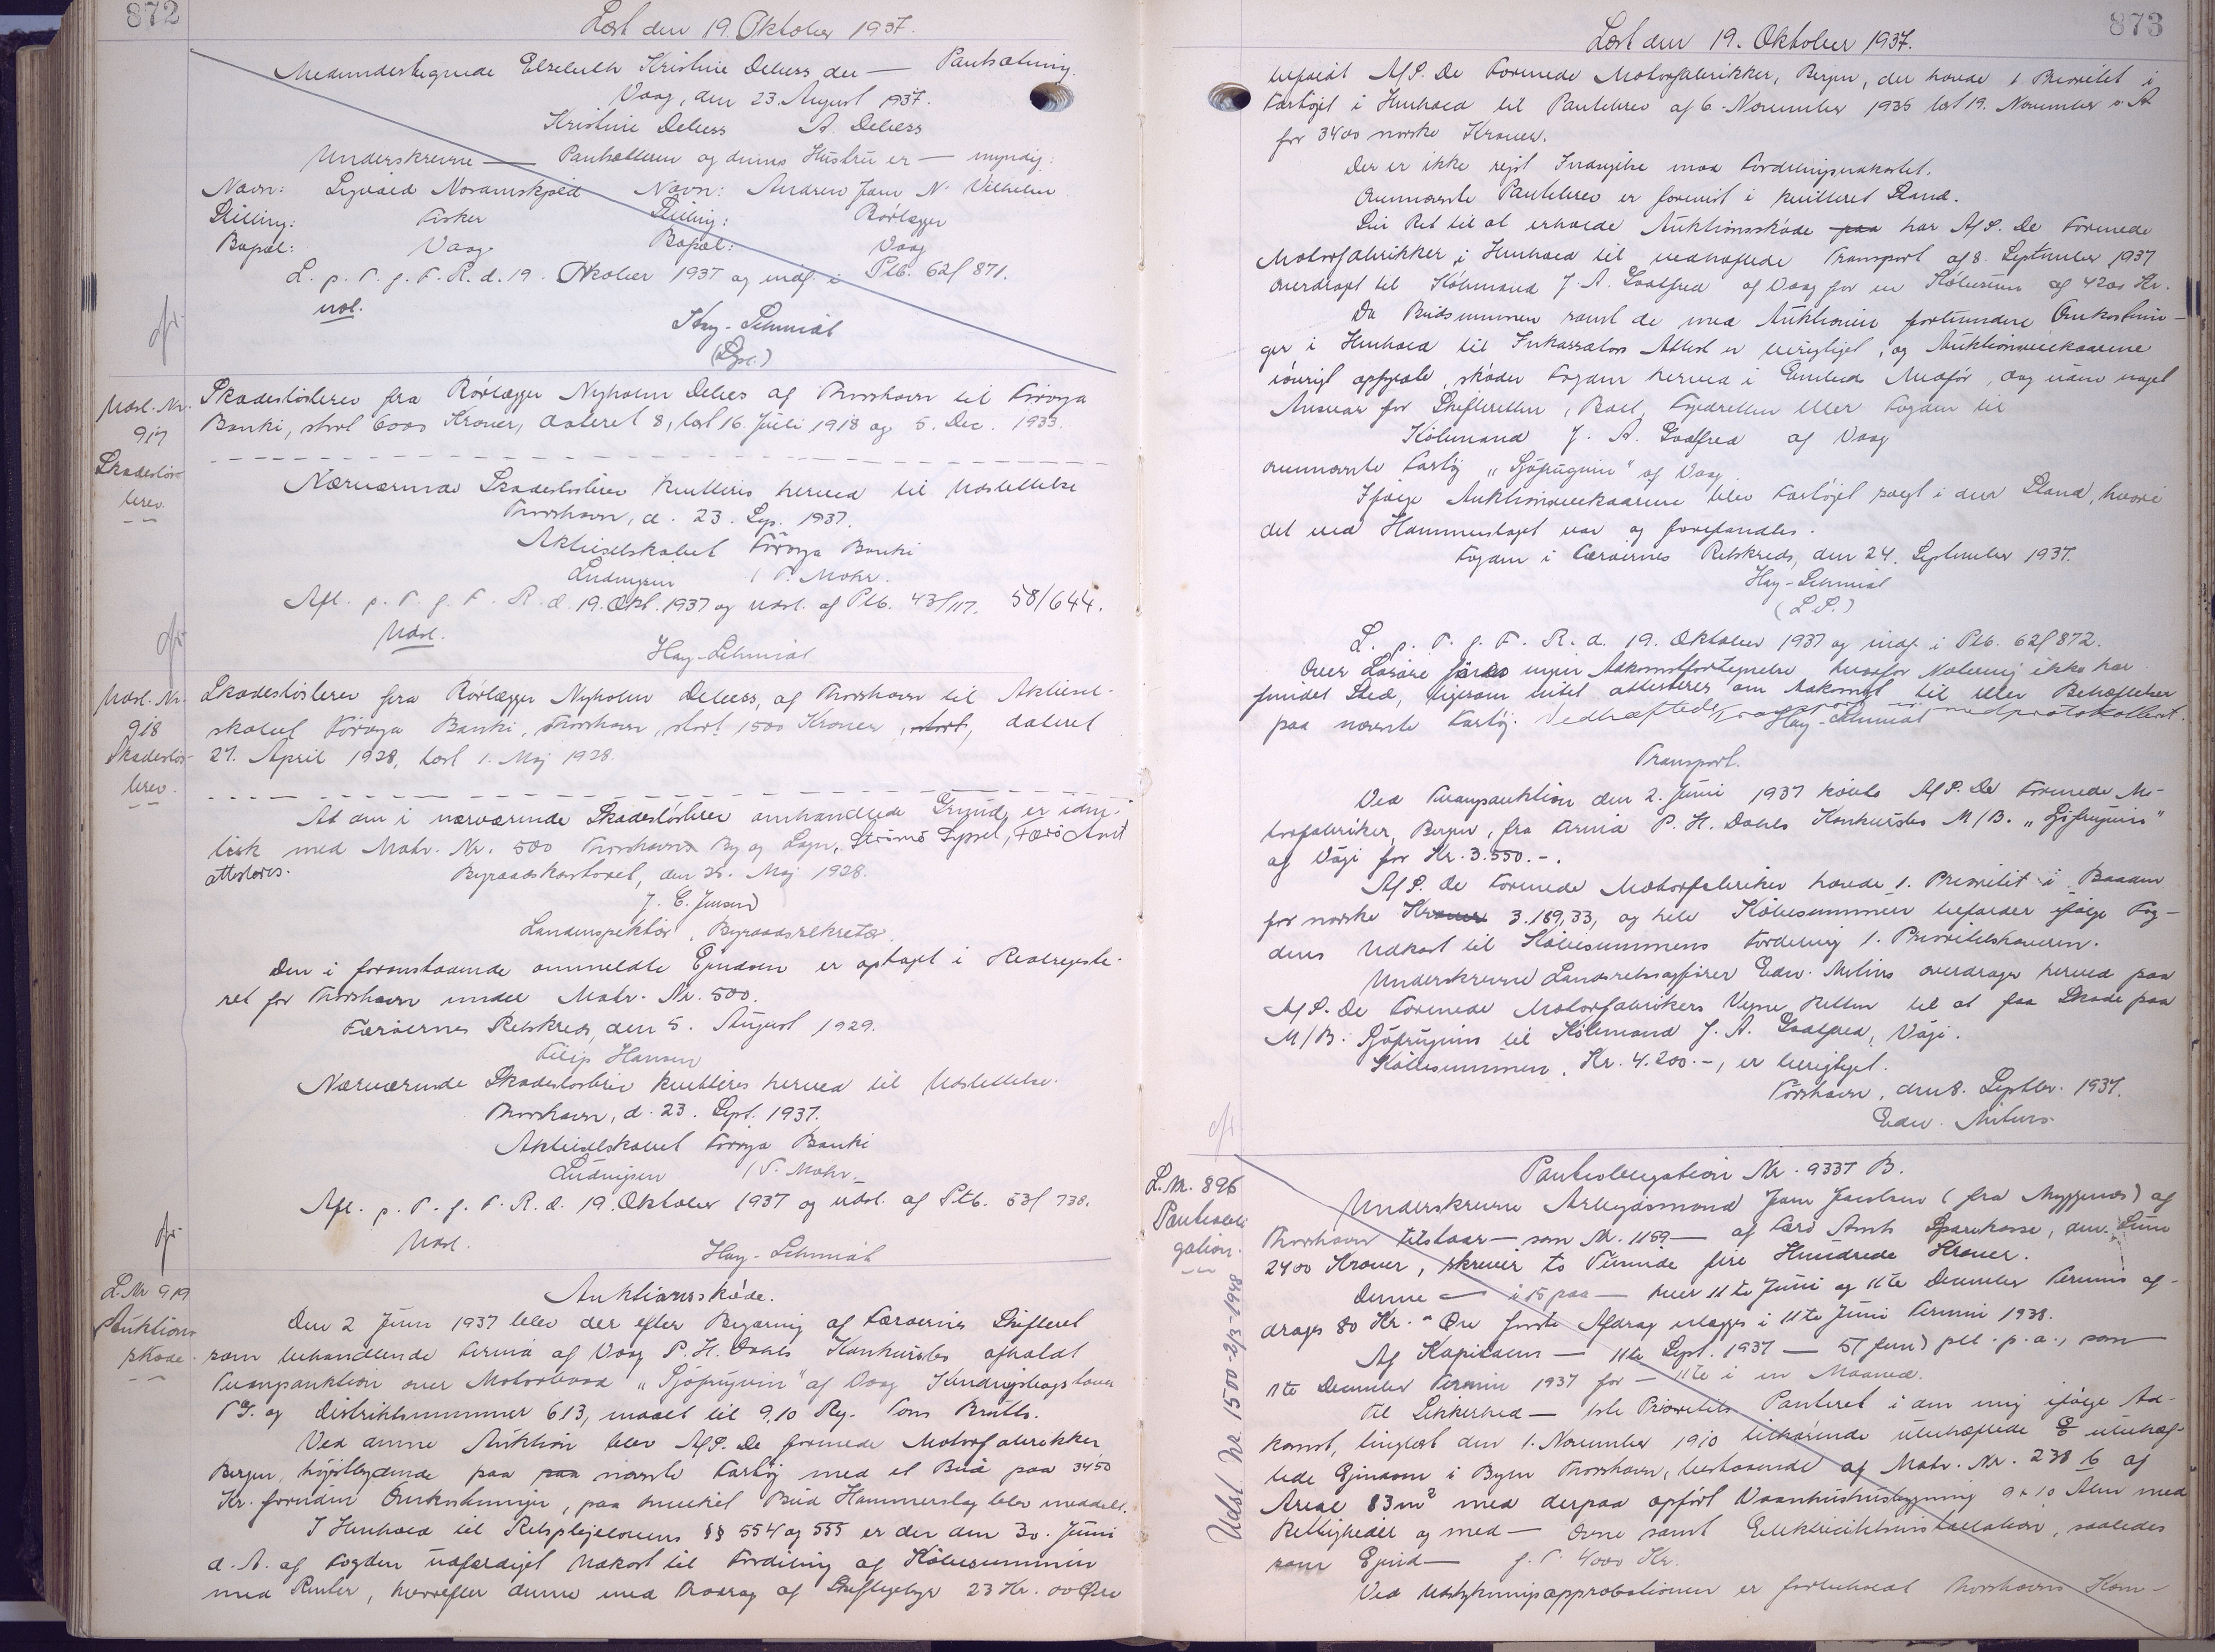 872
Læst den 19. Oktober 1937.
Medundertegnede Elsebeth Kristine Debess der — Pantsætning.
Vaag, den 23. August 1937.
Kristine Debess A. Debess
Underskrevne — Pantsætteren og dennes Hustru er — myndig:
Navn: Sigvald Navn: Andrew Jam N. Vilhelm
Stilling: Fisker Stilling: Rörlægger
Bopæl: Vaag Bopæl: Vaag
L. p. T. f. F. R. d. 19. Oktober 1937 og indf. i Ptb. 62f 871.
Hay-Schmidt
Udsl. Nr.
917
Skadeslös-
brev.
Skadeslösbrev fra Rörlægger Nyholm Debes af Thorshavn til Föroya
Banki, stort 6000 Kroner, dateret 8, læst 16. Juli 1918 og 5. Dec. 1933.
Nærværende Skadeslösbrev kvitteres herved til Udslettelse
Thorshavn, d. 23. Sep. 1937.
Aktieselskabet Föroya Banki
Ludvigsen / P. Mohr.
Afl. p. T. f. F. R. d. 19. Okt. 1937 og udsl. af Ptb. 43f 117. 58/644.
Udsl.
Hay-Schmidt
Udsl. Nr.
918
Skadeslös-
brev.
Skadeslösbrev fra Rörlægger Nyholm Debess, af Thorshavn til Aktiesel-
skabet Föroya Banki, Thorshavn, stort 1500 Kroner, stort, dateret
27. April 1928, læst 1. Maj 1928.
At den i nærværende Skadeslösbrev omhandlede Grund er iden-
tisk med Matr. Nr. 500 Thorshavns By og Sogn, Strömö Syssel, Færö Amt
attesteres. Byraadskontoret, den 25. Maj 1928.
J. C. Jensen
Landinspektör, Byraadssekretær.
Den i foranstaaende anmeldte Ejendom er optaget i Realregiste-
ret for Thorshavn under Matr. Nr. 500.
Færöernes Retskreds, den 5. August 1929.
Filip Hansen
Nærværende Skadeslösbrev kvitteres herved til Udslettelse.
Thorshavn, d. 23. Sept. 1937.
Aktieselskabet Föroya Banki
Ludvigsen / P. Mohr
Afl. p. T. f. F. R. d. 19. Oktober 1937 og udsl. af Ptb. 53f 738.
Udsl.
Hay-Schmidt
L. Nr. 919
Auktions
skøde.
Auktionsskøde.
Den 2 Juni 1937 blev der efter Begæring af Færöernes Skifteret
som behandlende Firma af Vaag P. H. Dahls Konkursbo afholdt
Tvangsauktion over Motorbaad „Sjöfuglin" af Vaag Kendingsbogstaver
T G. og Distriktsnummer 613, maalt til 9,10 Reg. Tons Brutto.
Ved denne Auktion blev A/S. De forenede Motorfabrikker
Bergen, höjstbydende paa paa nævnte Fartöj med et Bud paa 3450
Kr. foruden Omkostninger, paa hvilket Bud Hammerslag blev meddelt.
I Henhold til Retsplejelovens §§ 554 og 555 er der den 30. Juni
d. A. af Fogden udfærdiget Udkast til Fordeling af Köbesummen
med Renter, hvorefter denne med Fradrag af Skiftegebyr 23 Kr. 00 Øre
873
Læst den 19. Oktober 1937.
tilfaldt A/S. De Forenede Motorfabrikker, Bergen, der havde 1 Prioritet i
Fartöjet i Henhold til Pantebrev af 6. November 1935 læst 19. November s. A
for 3400 norske Kroner.
Der er ikke rejst Indsigelse mod Fordelingsudkastet.
Ommeldte Pantebrev er forevist i kvitteret Stand.
Sin Ret til at erholde Auktionsskøde paa har A/S. De Forenede
Motorfabrikker, i Henhold til vedhæftede Transport af 8. September 1937
overdraget til Köbmand J. A. Godtfred af Vaag for en Köbesum af 4200 Kr.
Da Budsummen samt de med Auktionen forbundne Omkostnin-
ger i Henhold til Inkassators Attest er berigtiget, og Auktionsvilkaarene
iövrigt opfyldte, sköder Fogden herved i Embeds Medför, dog uden noget
Ansvar for Skifteretten, Boet, Fogedretten eller Fogden til
Köbmand J. A. Godtfred af Vaag
ommeldte Fartöj „Sjöfuglin" af Vaag.
Ifölge Auktionsvilkaarene blev Fartöjet solgt i den Stand, hvori
det ved Hammerslaget var og forefandtes.
Fogden i Færöernes Retskreds, den 24. September 1937.
Hay-Schmidt
(L.S.)
L. p. T. f. F. R. d. 19. Oktober 1937 og indf. i Ptb. 62f 872.
Over Lösöre föres ingen Adkomstfortegnelse hvorfor Notering ikke har
fundet Sted, ligesom intet attesteres om Adkomst til eller Behæftelser
paa nævnte Fartöj. Vedhæftede Transport er medprotokolleret.
Hay-Schmidt
Transport.
Ved Tvangsauktion den 2. Juni 1937 köbte A/S. De Forenede Mo-
torfabriker, Bergen, fra Firma P. H. Dahls Konkursbo M/B. „Sjöfuglin"
af Vági for Kr. 3.550.-.
A/S. De Forenede Motorfabriker havde 1. Prioritet i Baaden
for norske Kroner 3.189,33, og hele Köbesummen tilfalder ifölge Fog-
dens Udkast til Köbesummens Fordeling 1. Prioritetshaveren.
Underskrevne Landsretssagförer Edw. Mitens overdrager herved paa
A/S. De Forenede Motorfabrikers Vegne Retten til at faa Sköde paa
M/B. Sjöfuglin til Köbmand J. A. Godtfred, Vági.
Köbesummen, Kr. 4.200.-, er berigtiget.
Tórshavn, den 8. Septbr. 1937.
Edw. Mitens.
L. Nr. 896
Pantobli-
gation.
Udsl. Nr. 1500-2/3-1948
Pantobligation Nr. 9337 B.
Underskrevne Arbejdsmand Jam Jacobsen (fra Myggenæs) af
Thorshavn tilstaar — som Nr. 1159 — af Færö Amts Sparekasse, den Sum
2400 Kroner, skriver to Tusinde fire Hundrede Kroner.
Denne — i 15 paa — hver 11te Juni og 11te December Termin af-
drages 80 Kr. " Øre förste Afdrag erlægges i 11te Juni Termin 1938.
Af Kapitalen — 11te Sept. 1937 — 5 (fem) pCt. p. a., som
11te December Termin 1937 for — 11te i en Maaned.
Til Sikkerhed — 1ste Prioritets Panteret i den mig ifölge Ad-
komst, tinglæst den 1. November 1910 tilhörende
Ejendom i Byen Thorshavn, bestaaende af Matr. Nr. 238 b af
Areal 83 m² med derpaa opfört Vaaningshusbygning 9 x 10 Alen med
Rettigheder og med — Ovne samt Elektricitetsinstallation, saaledes
som Ejend — f. T. 4000 Kr.
Ved Udstykningsapprobationen er forbeholdt Thorshavns Kom-